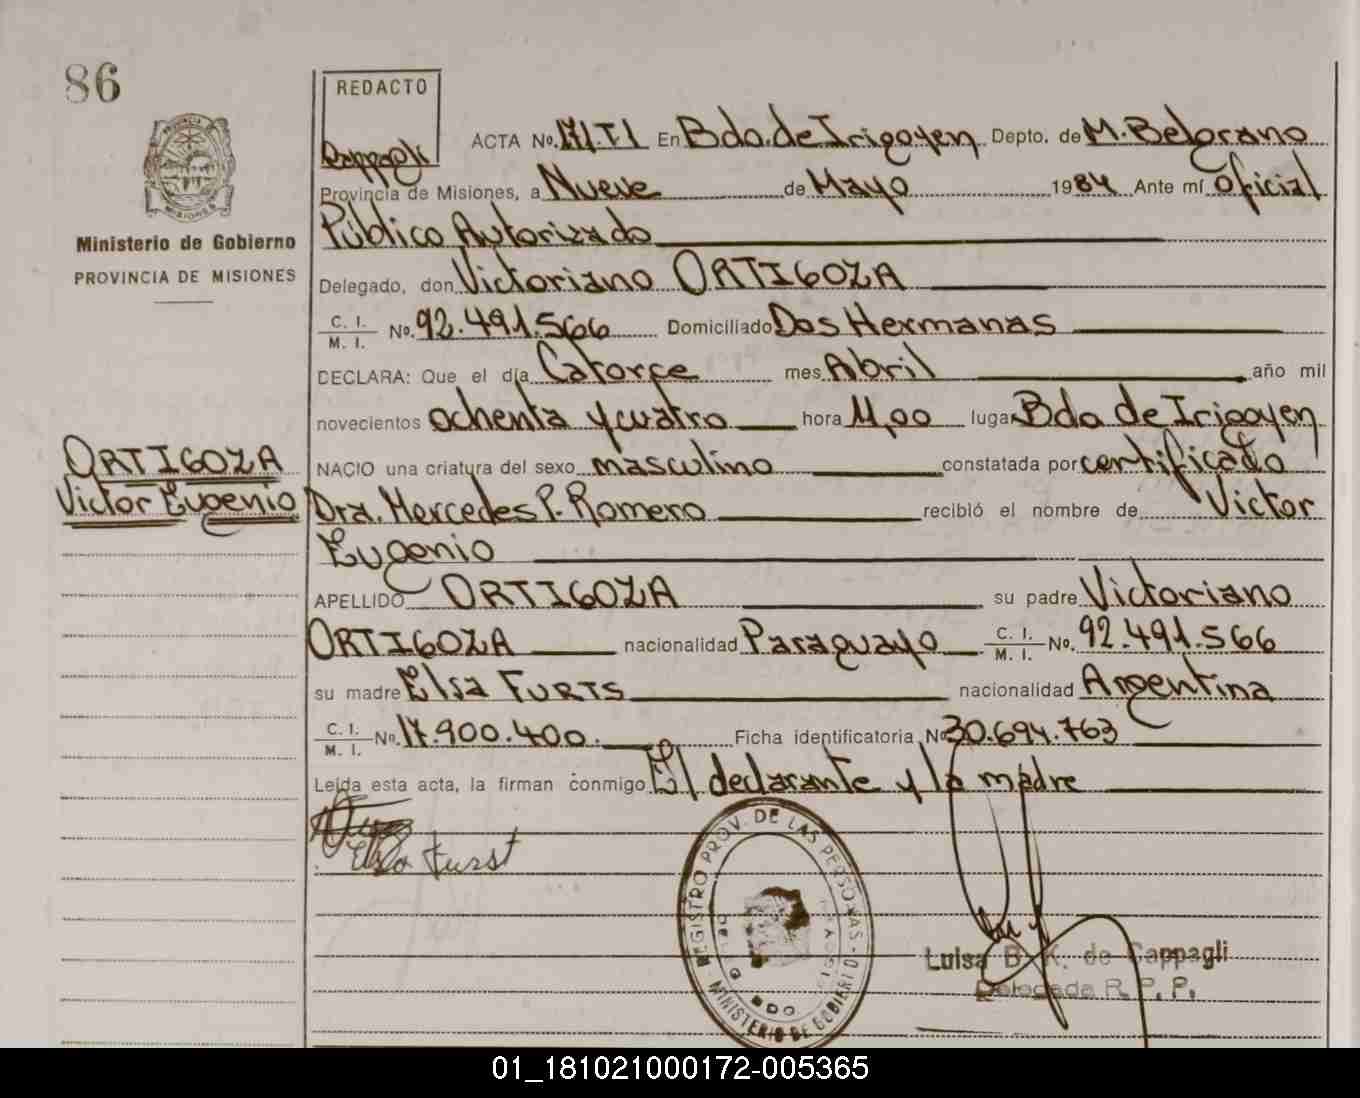 86
REDACTO
Cappagli
ACTA No. 171.T1 En Bdo. de Irigoyen Depto. de M. Belgrano
Provincia de Misiones, a Nueve de Mayo 1984 Ante mí Oficial
Público Autorizado
Delegado, don Victoriano ORTIGOZA
C. I.
M. I. No. 92.491.566 Domiciliado Dos Hermanas
DECLARA: Que el día Catorce mes Abril año mil
novecientos ochenta y cuatro hora 11,00 luga Bdo de Irigoyen
NACIO una criatura del sexo masculino constatada por certificado
Dra. Mercedes P. Romero recibió el nombre de Victor
Eugenio
APELLIDO ORTIGOZA su padre Victoriano
ORTIGOZA nacionalidad Paraguayo C. I. M. I. No. 92.491.566
su madre Elsa FURTS nacionalidad Argentina
C. I.
M. I. No. 17.900.400. Ficha identificatoria No 30.694.763
Leída esta acta, la firman conmigo El declarante y la madre
Elsa Furst
Ministerio de Gobierno
PROVINCIA DE MISIONES
ORTIGOZA
Victor Eugenio
PROVINCIA
MISIONES
REGISTRO PROV. DE LAS PERSONAS
MINISTERIO DE GOBIERNO
BDO
Luisa B. K. de Cappagli
Delegada R. P. P.
01_181021000172-005365